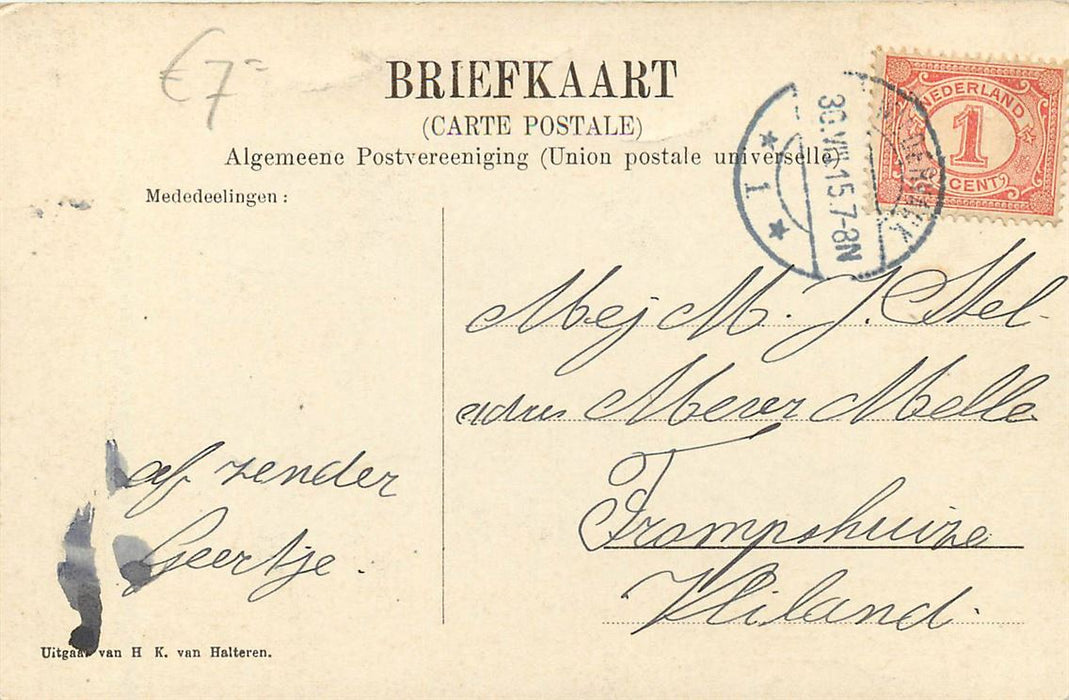 €7=
BRIEFKAART
(CARTE POSTALE)
Algemeene Postvereeniging (Union postale universelle)
Mededeelingen:
NEDERLAND
1
CENT
30.VIII.15.7-8N
1
Mej M. J. Stel
adres Mever Melle
Trompshuize
Vliland.
af zender
Geertje.
Uitgaaf van H K. van Halteren.